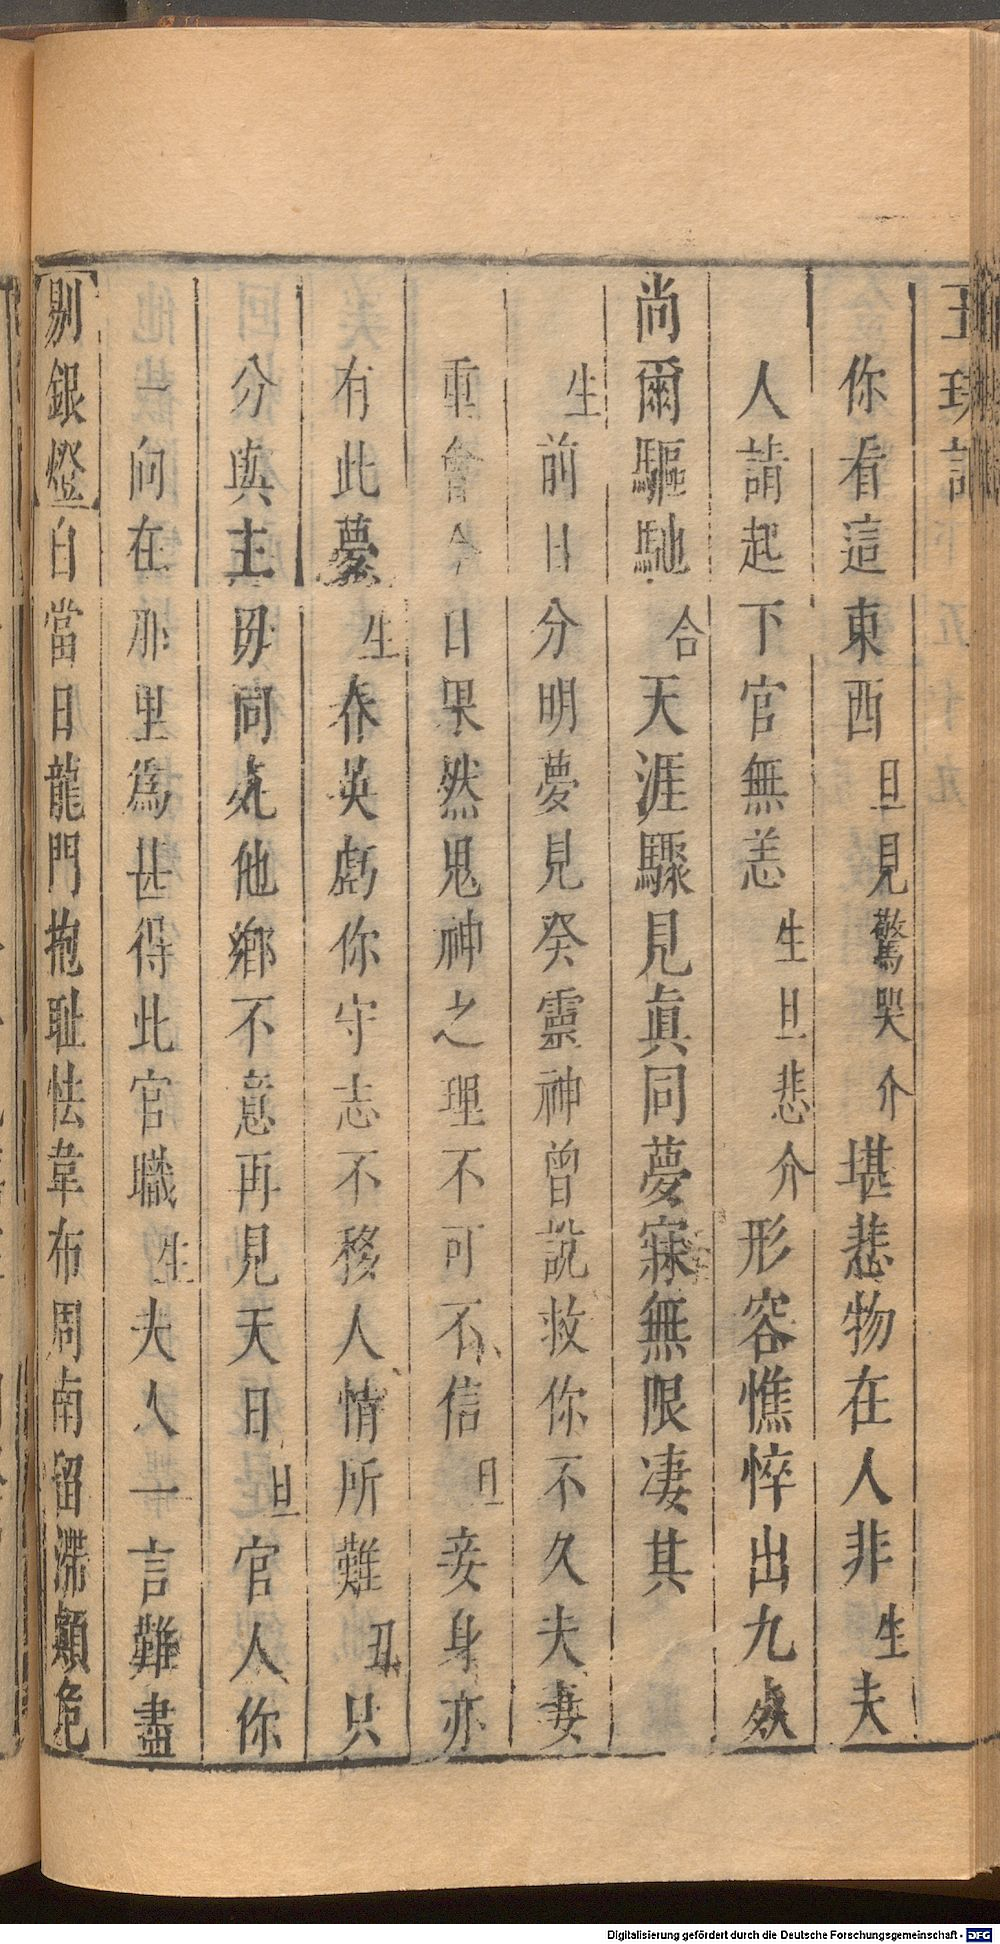 你看這東西旦見驚哭介堪悲物在人非生夫
人請起下官無恙生旦悲介形容憔悴出九㷠
尚爾驅馳合天涯驟見眞同夢寐無限凄其
生前日分明夢見癸靈神曾說救你不久夫妻
重會今日果然鬼神之理不可不信旦妾身亦
有此夢生春英虧你守志不移人情所難丑只
分與主毋同死他鄉不意再見天日旦官人你
一向在那里爲甚得此官職生夫人一言難盡
剔銀燈白當日龍門抱耻怯韋布周南留滯顛危
Digitalisierung gefördert durch die Deutsche Forschungsgemeinschaft - DFG